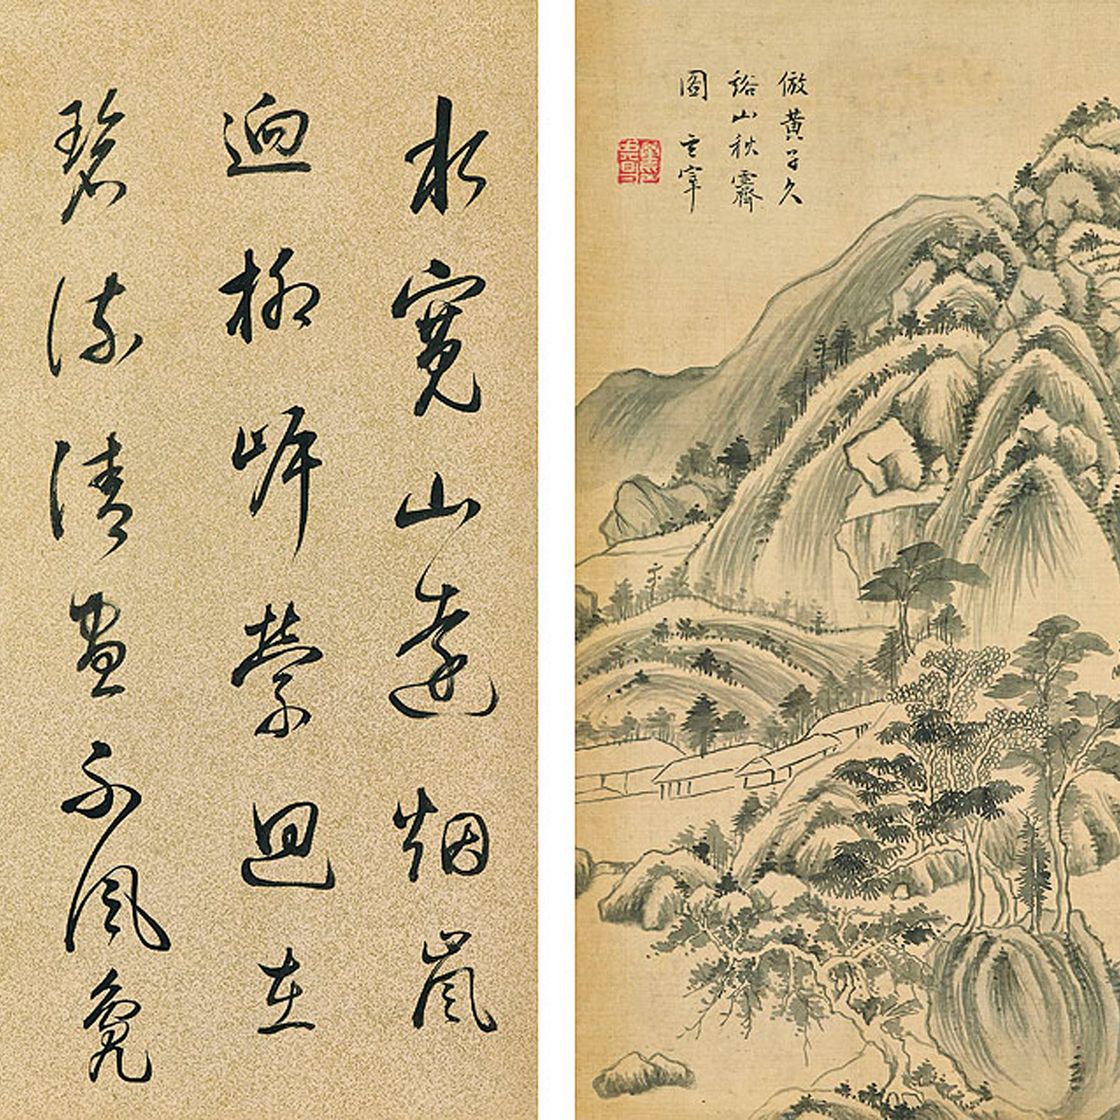 倣黃子久
谿山秋霽
圖 玄宰
水寬山遠烟嵐
迥柳岸縈迴在
碧流清晝不風鳧